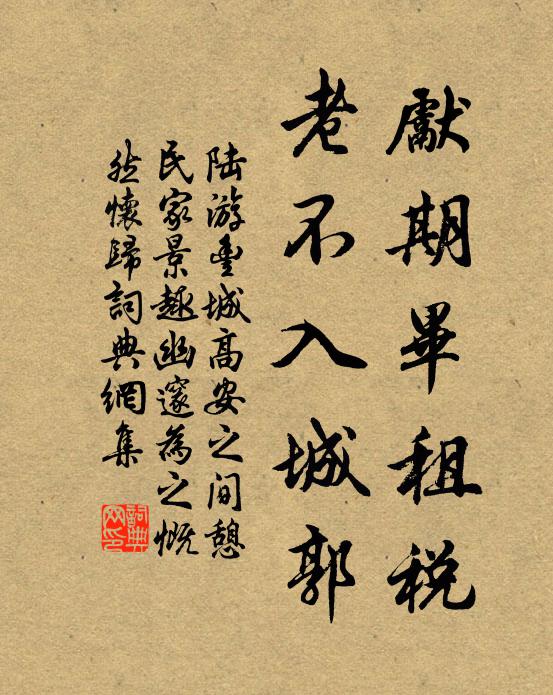 獻期畢租稅
老不入城郭
陆游豐城高安之间憩
民家景趣幽邃為之慨
然懷歸詞典網集
詞典
网印